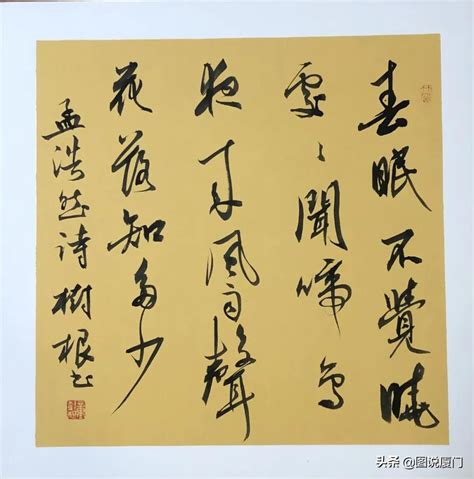 春眠不覺曉
處〻聞啼鸟
夜来风雨聲
花落知多少
孟浩然诗 樹根书
头条 @图说厦门